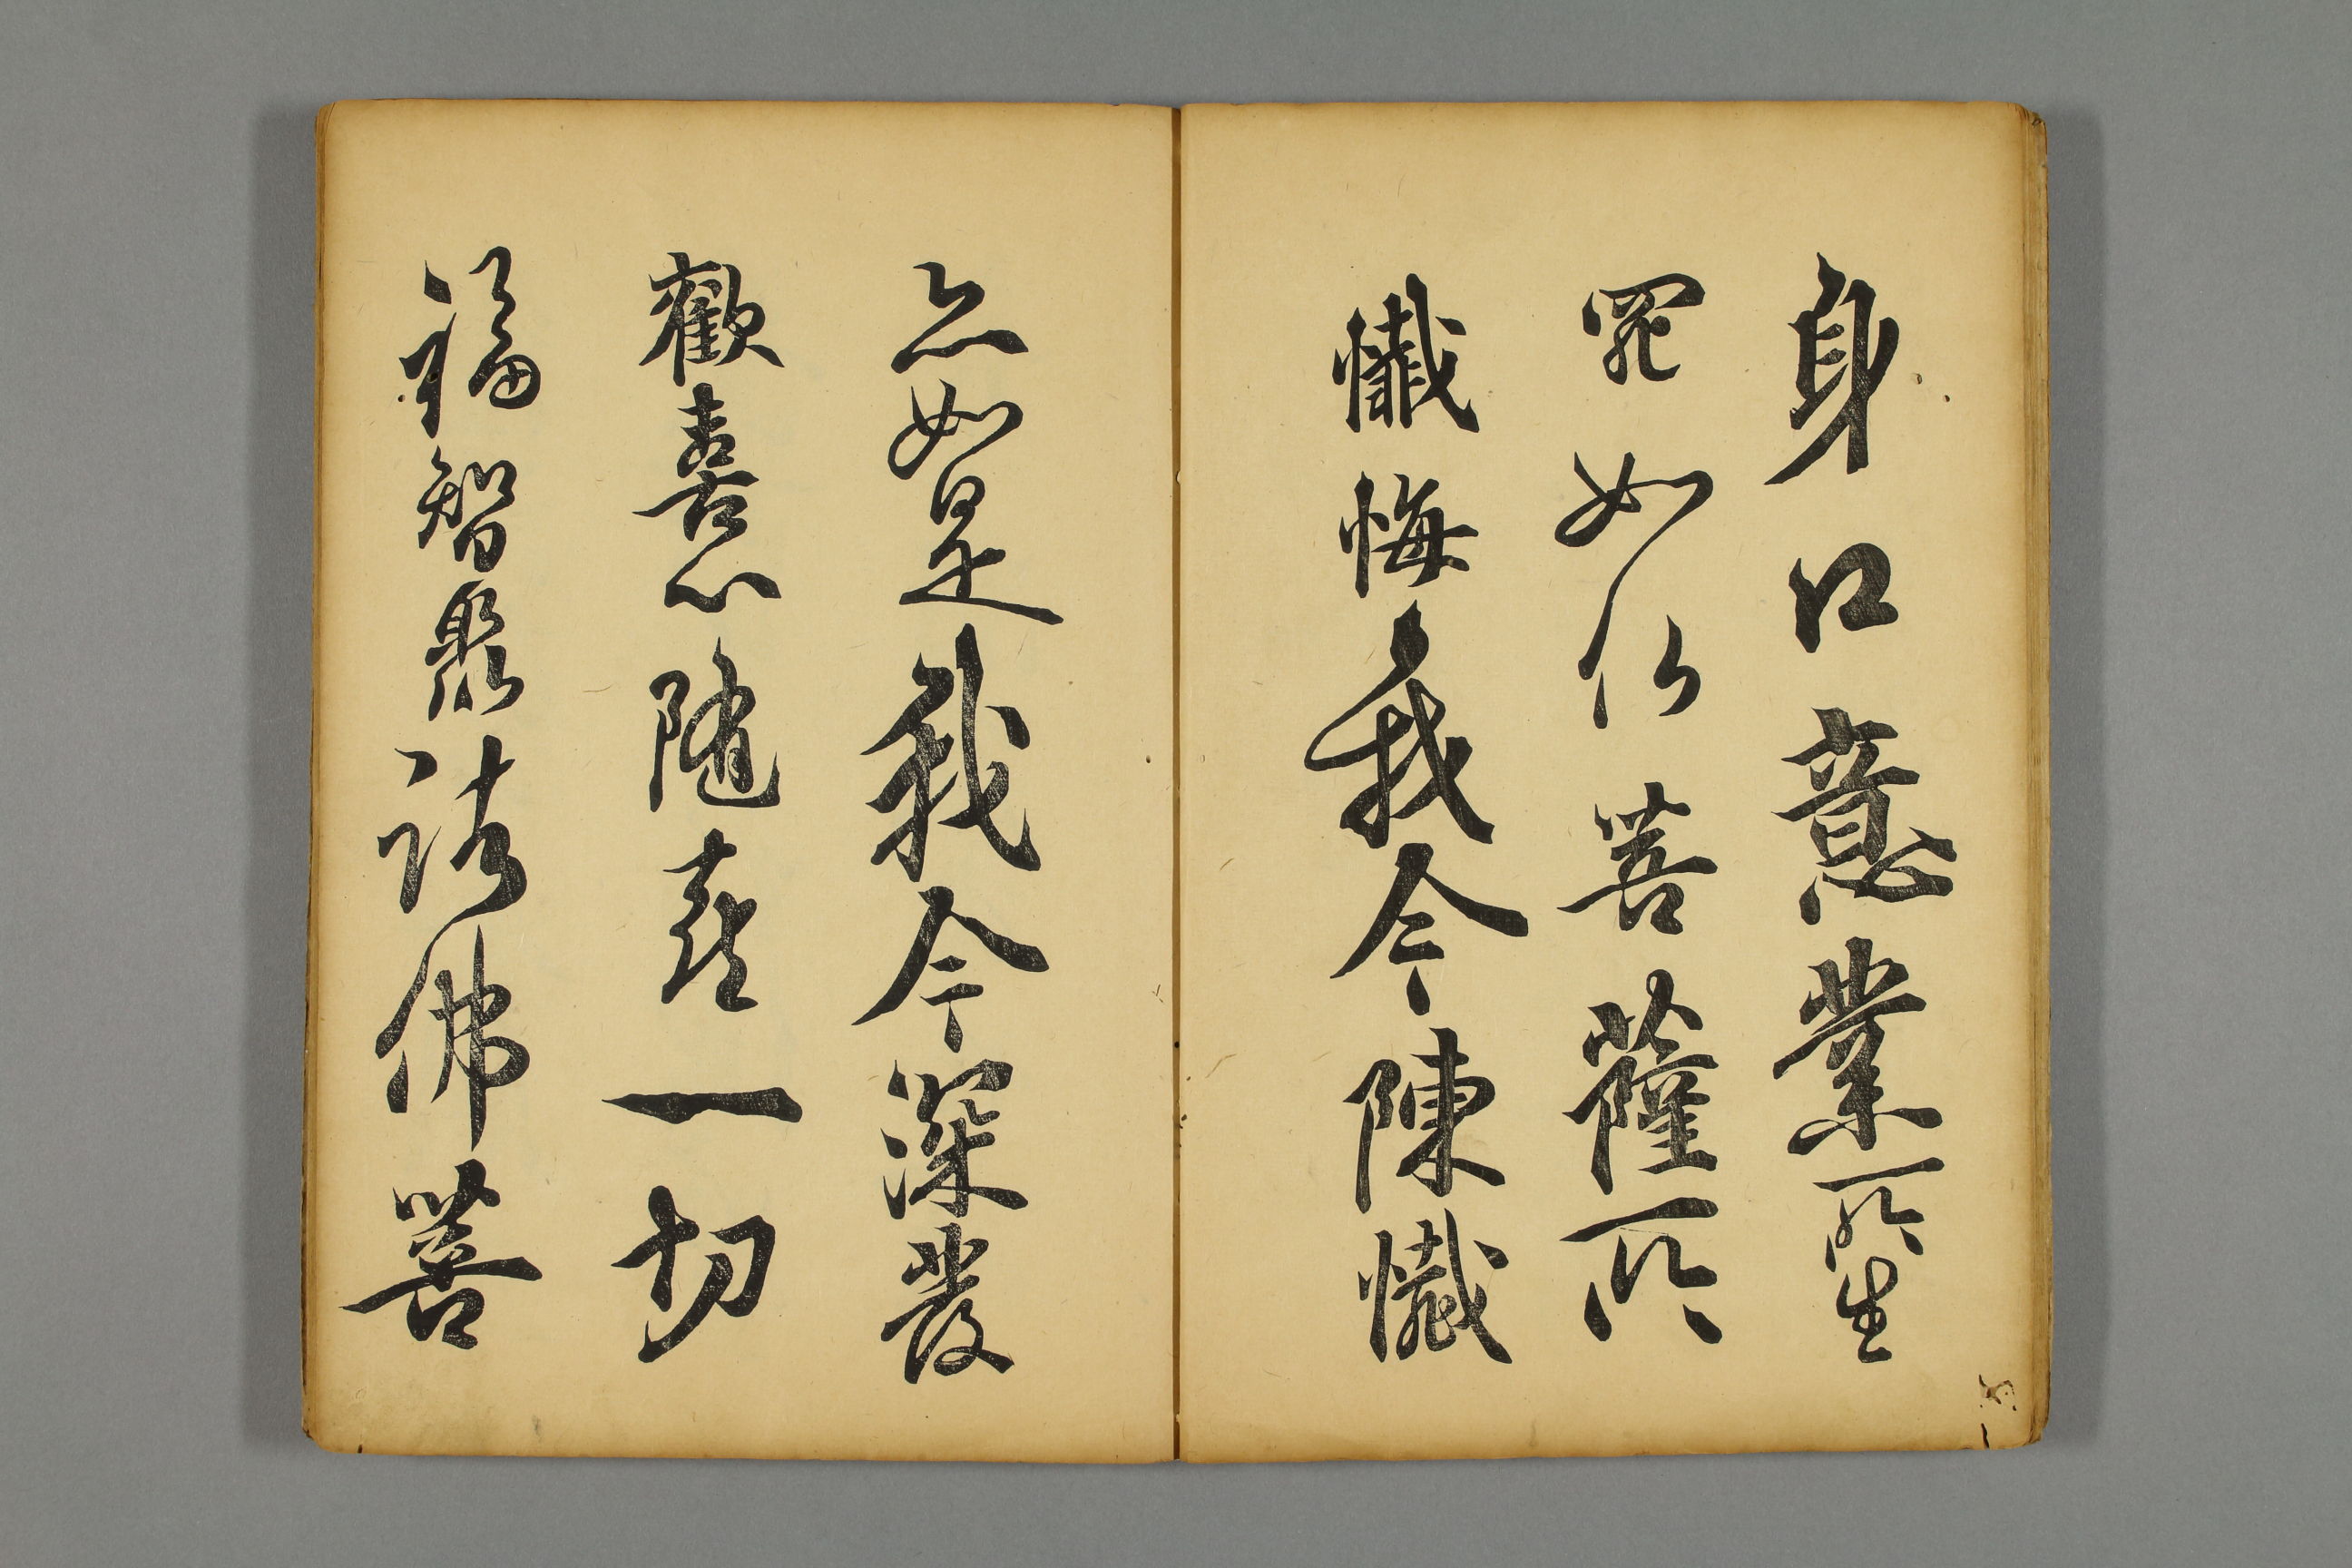 身口意業所生
罪如仏菩薩所
懺悔我今陳懺
亦如是我今深發
歡喜心随喜一切
福智聚諸佛菩